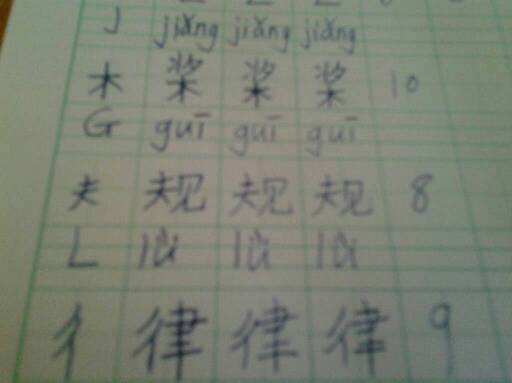 J jiǎng jiǎng jiǎng
木 桨 桨 桨 10
G guī guī guī
夫 规 规 规 8
L lǜ lǜ lǜ
彳 律 律 律 9